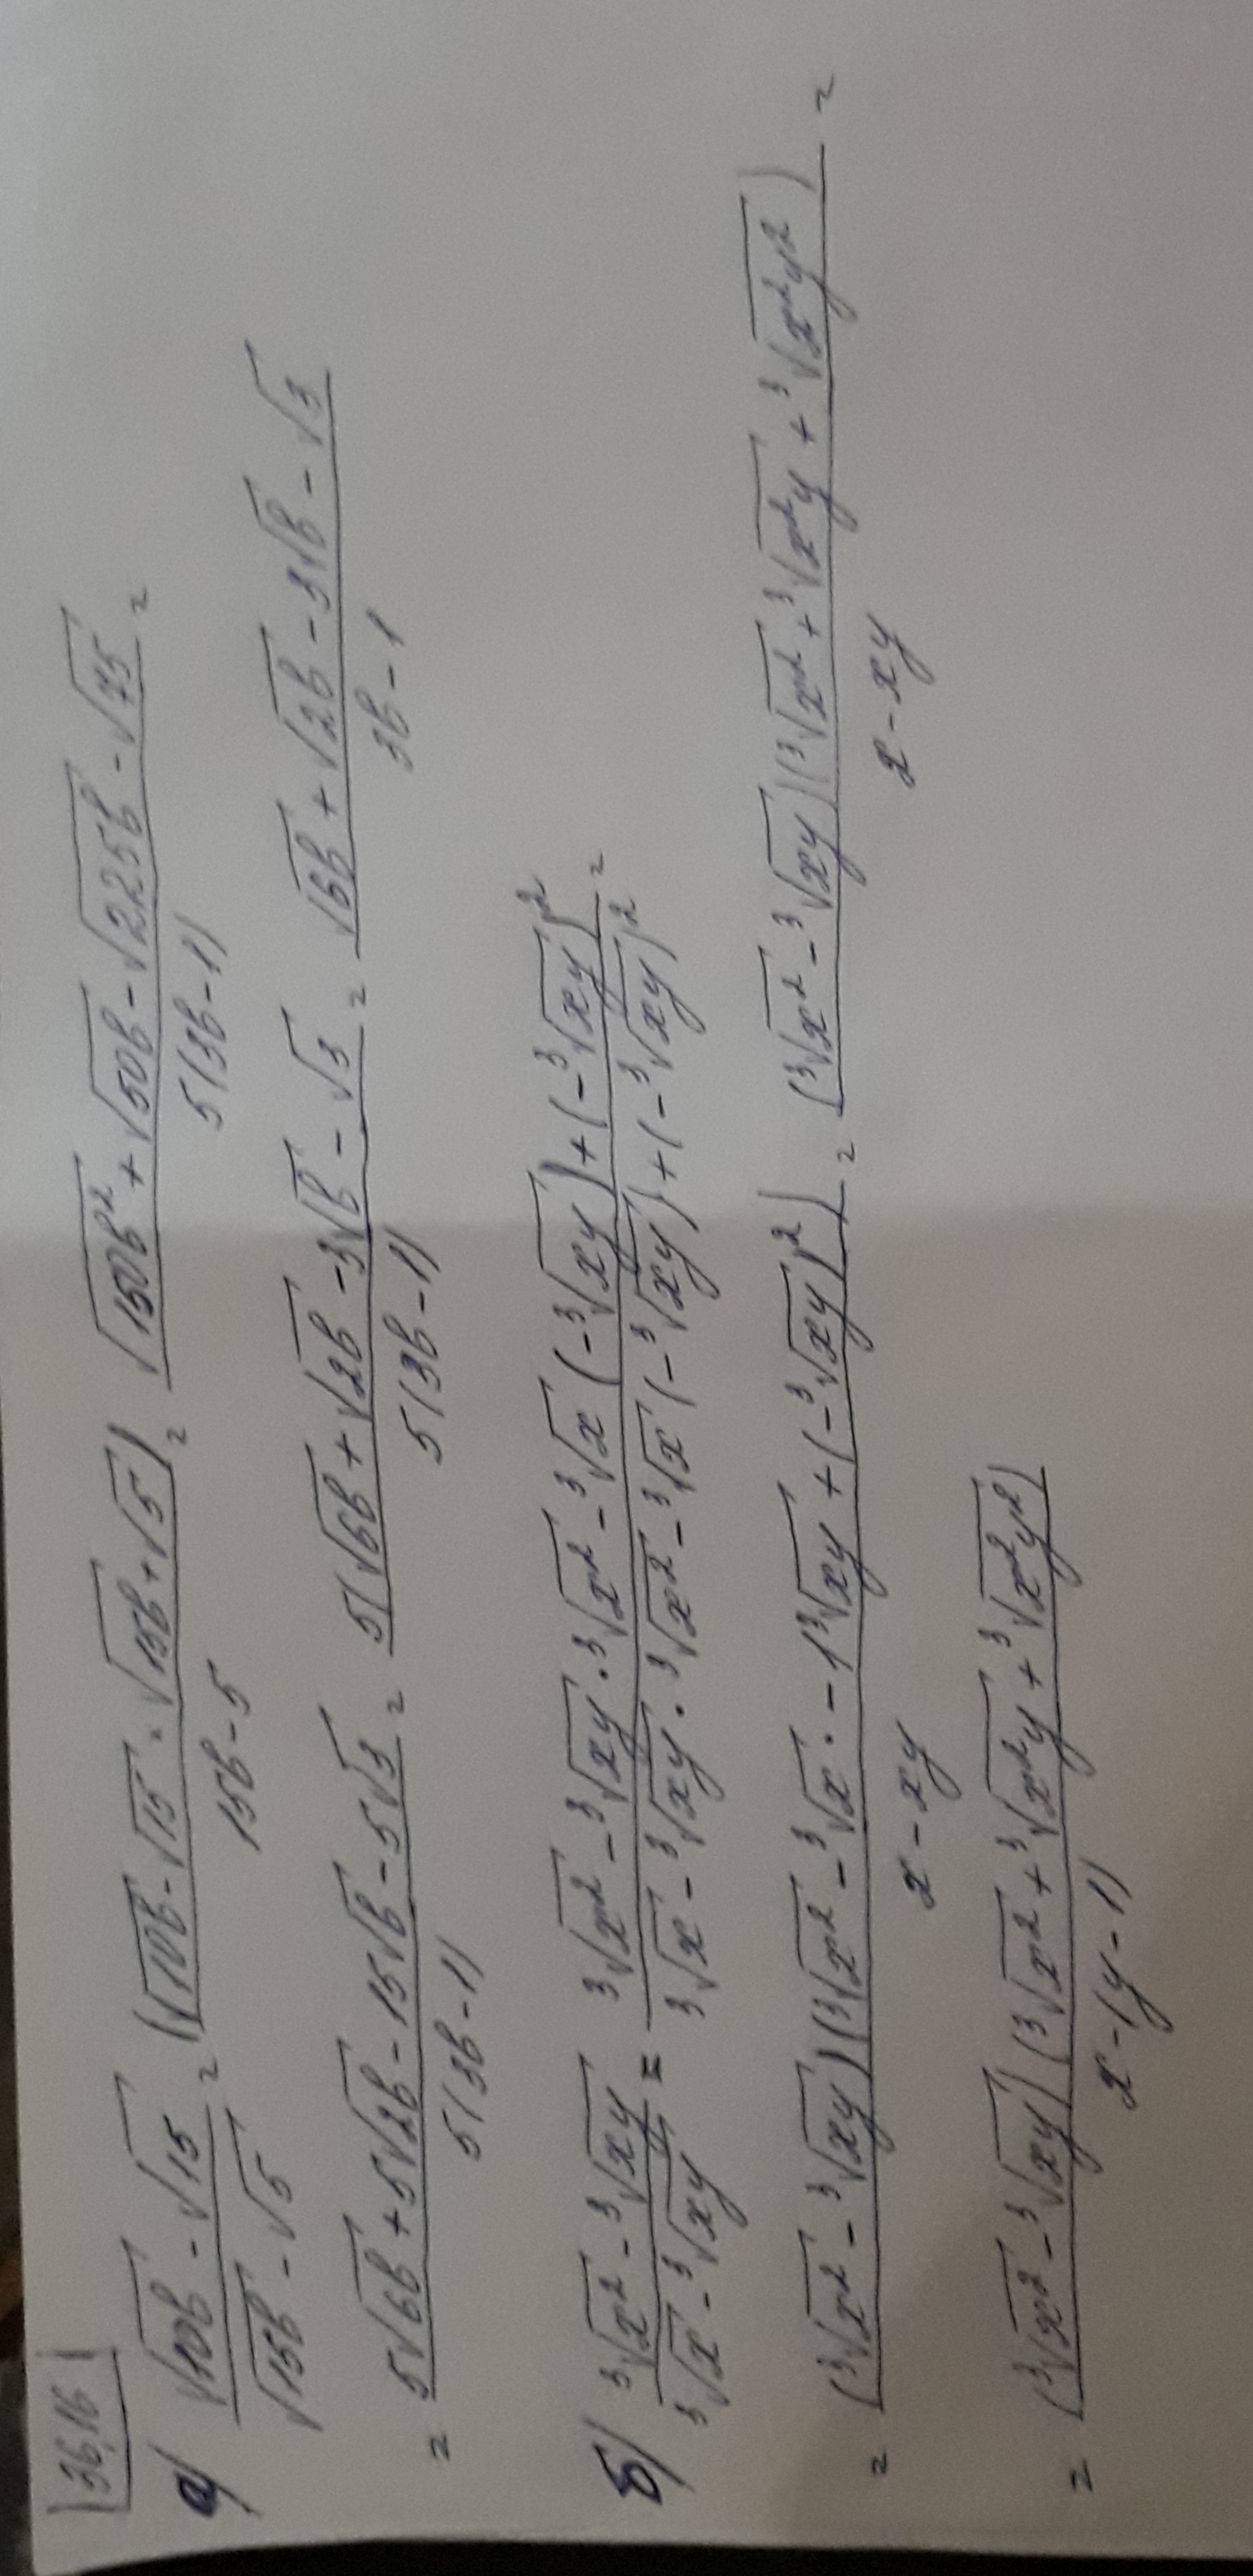 36.16
а) (√10b - √15)/(√15b - √5) = ((√10b - √15 · √15b + √5))/(15b - 5) = (√150b² + √50b - √225b - √75)/(5(3b - 1)) =
= (5√6b + 5√2b - 15√b - 5√3)/(5(3b - 1)) = (5(√6b + √2b - 3√b - √3)/(5(3b - 1)) = (√6b + √2b - 3√b - √3)/(3b - 1)
б) (³√x² - ³√xy)/(³√x - ³√xy) = (³√x² - ³√xy · ³√x² - ³√x (-³√xy) + (-³√xy)²)/(³√x - ³√xy · ³√x² - ³√x (-³√xy) + (-³√xy)²) =
= ((³√x² - ³√xy)(³√x² - ³√x · - 1³√xy + (-³√xy)²))/(x - xy) = ((³√x² - ³√xy)(³√x² + ³√x²y + ³√x²y²))/(x - xy) =
= ((³√x² - ³√xy)(³√x² + ³√x²y + ³√x²y²))/(x - (y - 1))